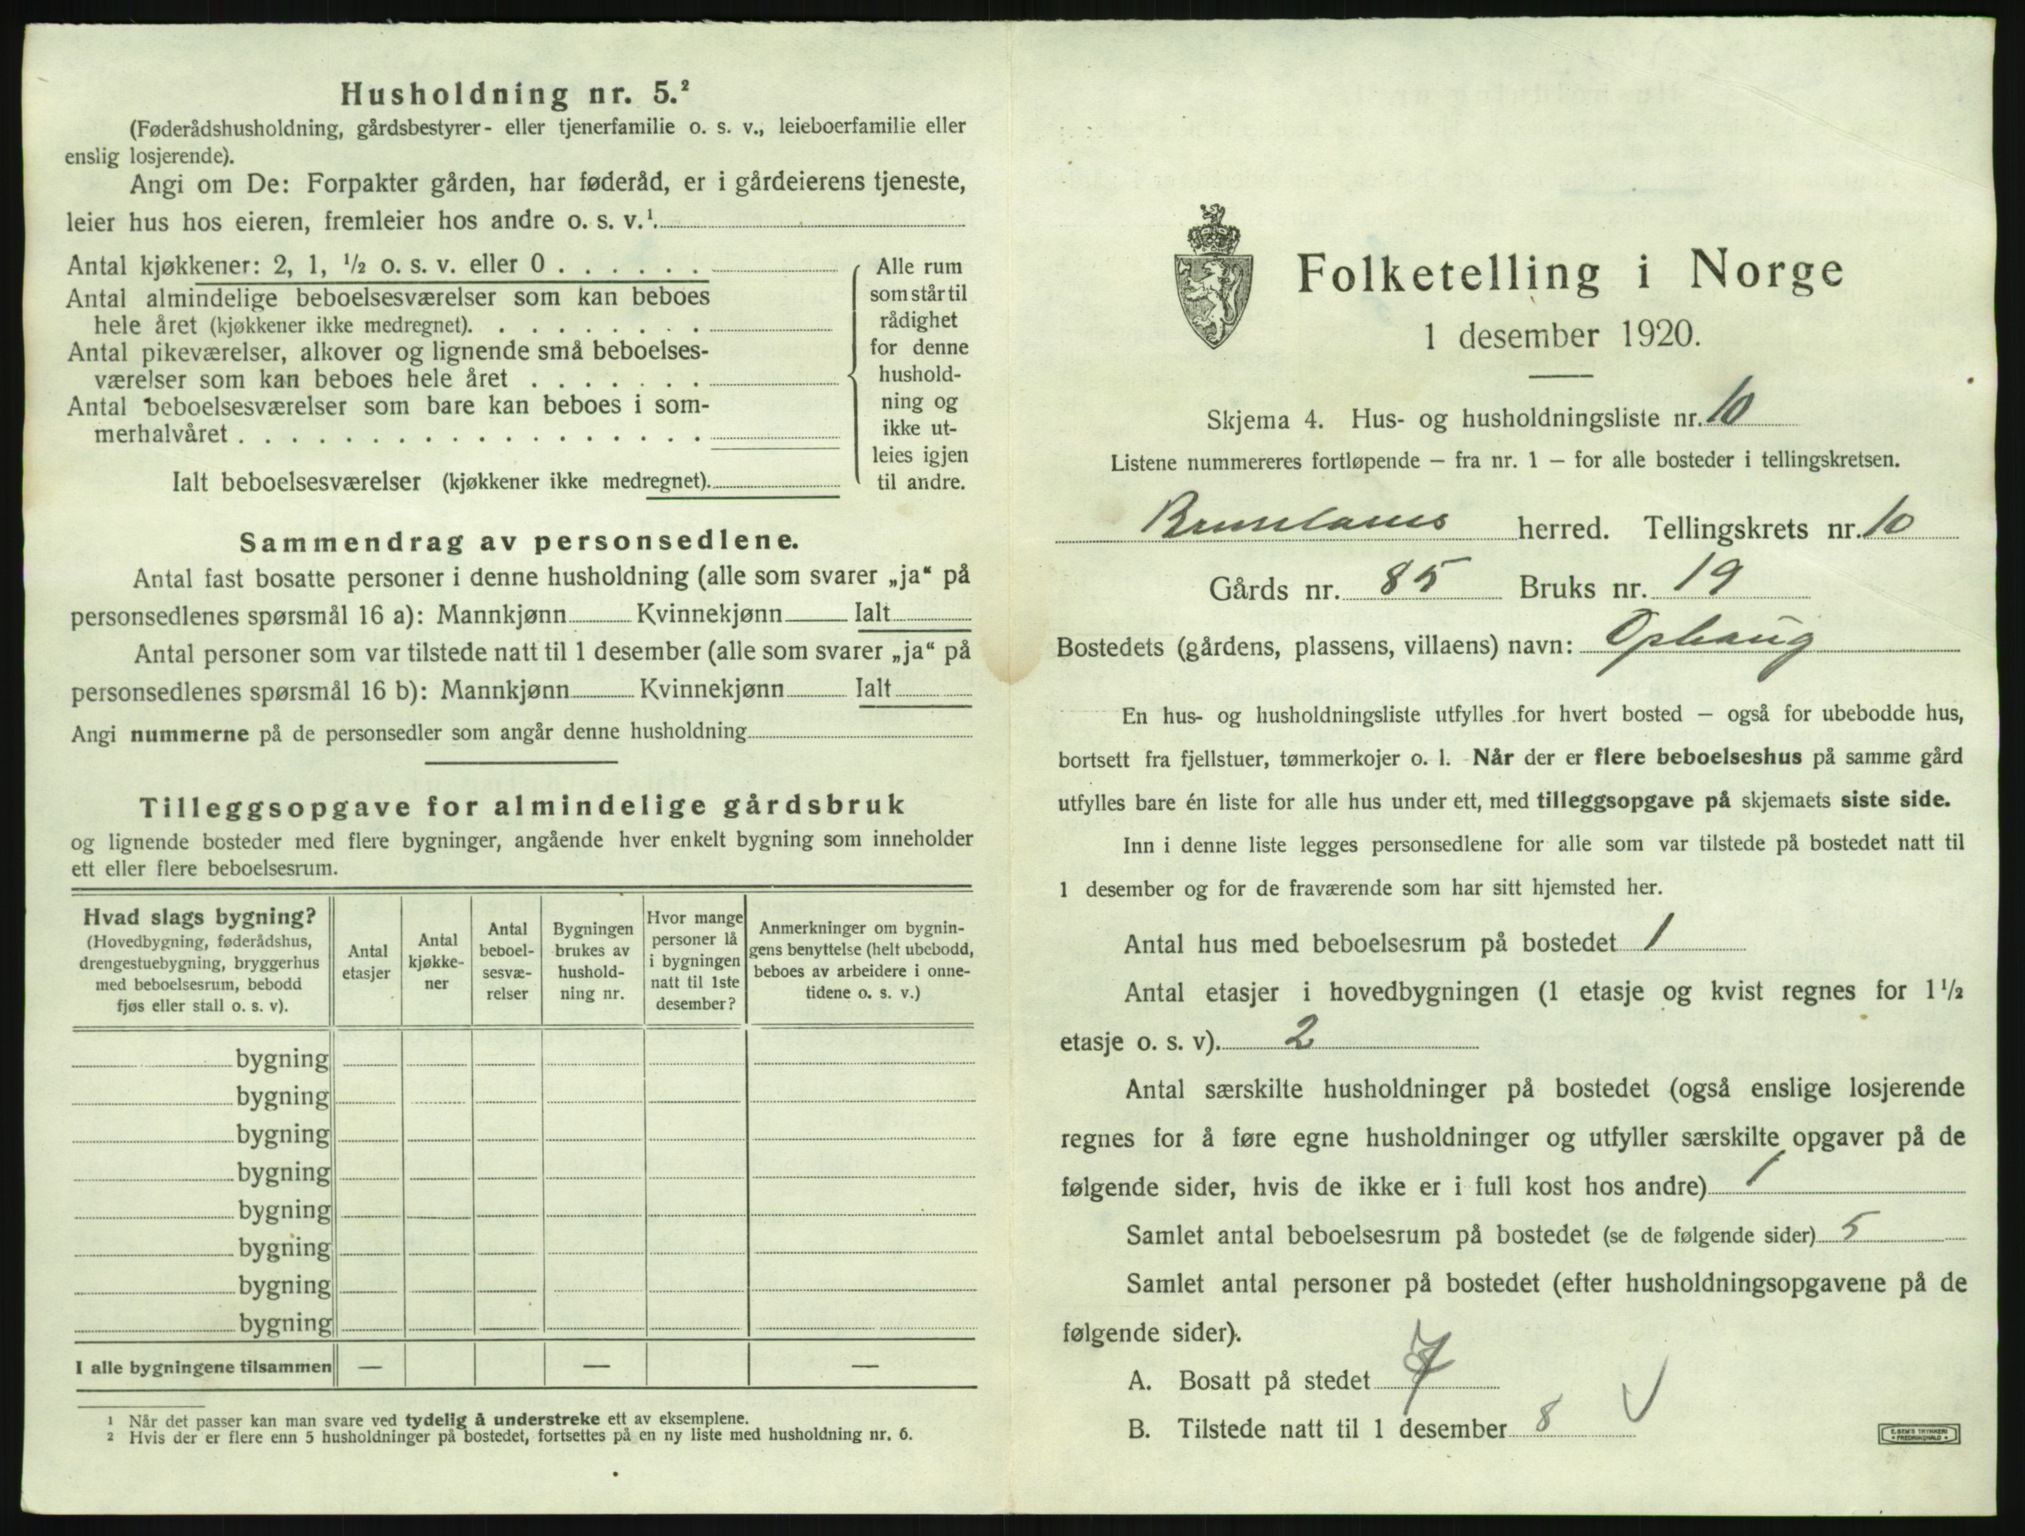 Husholdning nr. 5.²
(Føderådshusholdning, gårdsbestyrer- eller tjenerfamilie o. s. v., leieboerfamilie eller
enslig losjerende).
Angi om De: Forpakter gården, har føderåd, er i gårdeierens tjeneste,
leier hus hos eieren, fremleier hos andre o. s. v.¹.
Antal kjøkkener: 2, 1, ½ o. s. v. eller 0 . . . . . .
Antal almindelige beboelsesværelser som kan beboes
hele året (kjøkkener ikke medregnet). . . . . . . . .
Antal pikeværelser, alkover og lignende små beboelses-
værelser som kan beboes hele året . . . . . . .
Antal beboelsesværelser som bare kan beboes i som-
merhalvåret . . . . . . . . . . . . . . . . . .
Ialt beboelsesværelser (kjøkkener ikke medregnet).
Alle rum
som står til
rådighet
for denne
hushold-
ning og
ikke ut-
leies igjen
til andre.
Sammendrag av personsedlene.
Antal fast bosatte personer i denne husholdning (alle som svarer „ja“ på
personsedlenes spørsmål 16 a): Mannkjønn Kvinnekjønn Ialt
Antal personer som var tilstede natt til 1 desember (alle som svarer „ja“ på
personsedlenes spørsmål 16 b): Mannkjønn Kvinnekjønn Ialt
Angi nummerne på de personsedler som angår denne husholdning
Tilleggsopgave for almindelige gårdsbruk
og lignende bosteder med flere bygninger, angående hver enkelt bygning som inneholder
ett eller flere beboelsesrum.
Hvad slags bygning?
(Hovedbygning, føderådshus,
drengestuebygning, bryggerhus
med beboelsesrum, bebodd
fjøs eller stall o. s. v).
Antal
etasjer
Antal
kjøkke-
ner
Antal
beboel-
sesvæ-
relser
Bygningen
brukes av
hushold-
ning nr.
Hvor mange
personer lå
i bygningen
natt til 1ste
desember?
Anmerkninger om bygnin-
gens benyttelse (helt ubebodd,
beboes av arbeidere i onne-
tidene o. s. v.)
bygning
bygning
bygning
bygning
bygning
bygning
bygning
bygning
I alle bygningene tilsammen — — —
¹ Når det passer kan man svare ved tydelig å understreke ett av eksemplene.
² Hvis der er flere enn 5 husholdninger på bostedet, fortsettes på en ny liste med husholdning nr. 6.
Folketelling i Norge
1 desember 1920.
Skjema 4. Hus- og husholdningsliste nr. 10
Listene nummereres fortløpende – fra nr. 1 – for alle bosteder i tellingskretsen.
Brunlanes herred. Tellingskrets nr. 10
Gårds nr. 85 Bruks nr. 19
Bostedets (gårdens, plassens, villaens) navn: Ophaug
En hus- og husholdningsliste utfylles for hvert bosted – også for ubebodde hus,
bortsett fra fjellstuer, tømmerkojer o. l. Når der er flere beboelseshus på samme gård
utfylles bare én liste for alle hus under ett, med tilleggsopgave på skjemaets siste side.
Inn i denne liste legges personsedlene for alle som var tilstede på bostedet natt til
1 desember og for de fraværende som har sitt hjemsted her.
Antal hus med beboelsesrum på bostedet 1
Antal etasjer i hovedbygningen (1 etasje og kvist regnes for 1½
etasje o. s. v). 2
Antal særskilte husholdninger på bostedet (også enslige losjerende
regnes for å føre egne husholdninger og utfyller særskilte opgaver på de
følgende sider, hvis de ikke er i full kost hos andre) 1
Samlet antal beboelsesrum på bostedet (se de følgende sider) 5
Samlet antal personer på bostedet (efter husholdningsopgavene på de
følgende sider).
A. Bosatt på stedet 7
B. Tilstede natt til 1 desember 8
E. SEM'S TRYKKERI
FREDRIKSHALD